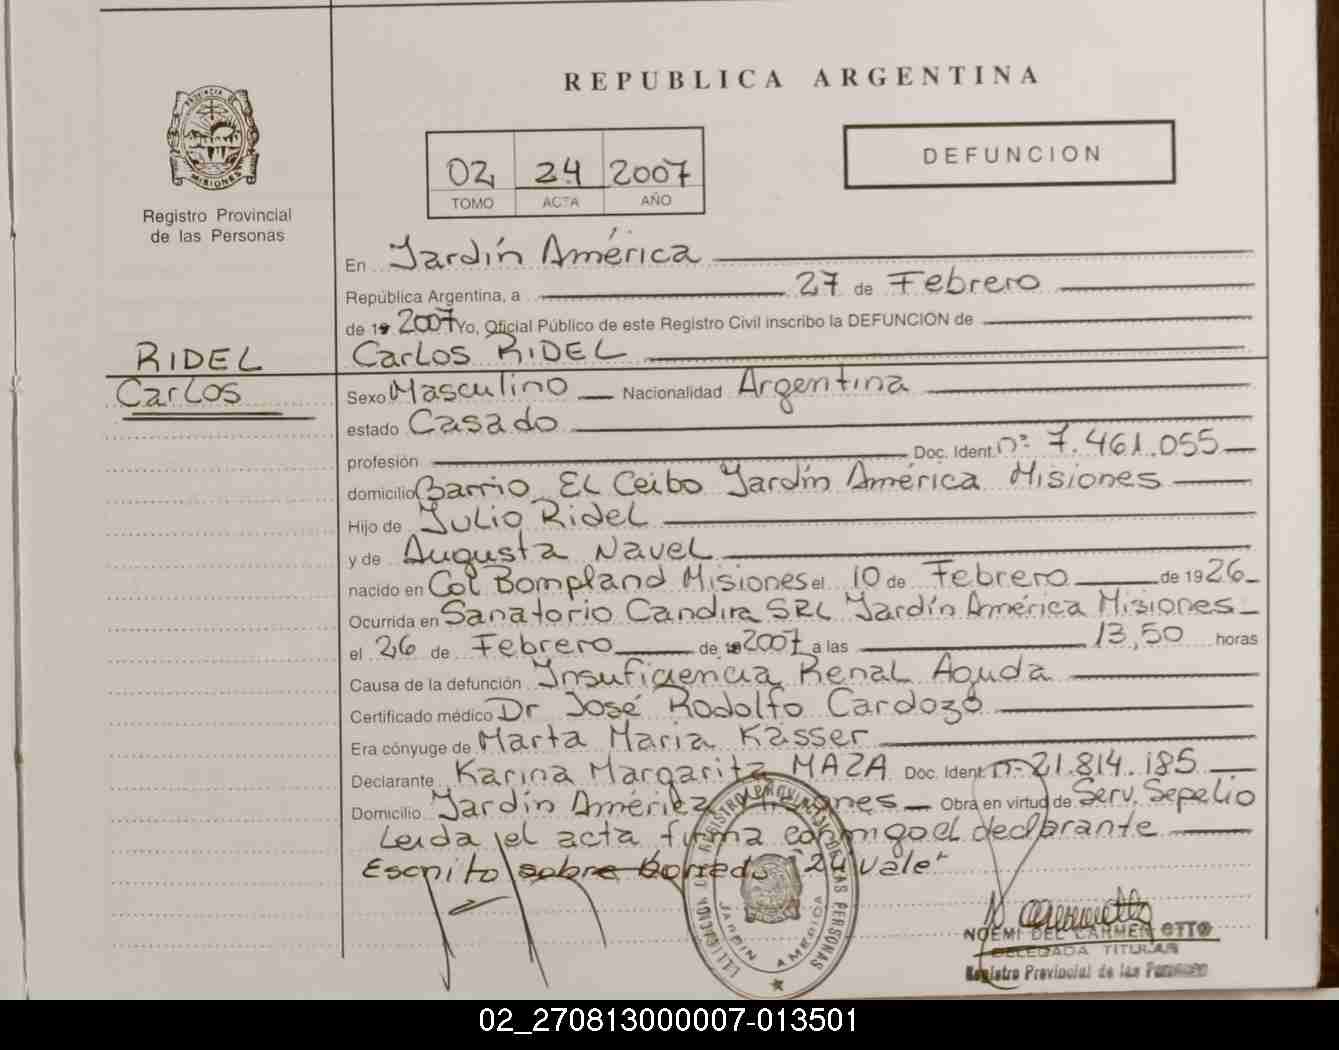 REPUBLICA ARGENTINA
PROVINCIA DE
MISIONES
Registro Provincial
de las Personas
02 24 2007
TOMO ACTA AÑO
DEFUNCION
En Jardín América
República Argentina, a 27 de Febrero
de 19 2007 Yo, Oficial Público de este Registro Civil inscribo la DEFUNCION de
RIDEL
Carlos
Carlos RIDEL
Sexo Masculino Nacionalidad Argentina
estado Casado
profesión Doc. Ident. nº 7.461.055
domicilio Barrio El Ceibo Jardín América Misiones
Hijo de Julio Ridel
y de Augusta Navel
nacido en Col Bompland Misiones el 10 de Febrero de 1926
Ocurrida en Sanatorio Candira SRL Jardín América Misiones
el 26 de Febrero de 2007 a las 13,50 horas
Causa de la defunción Insuficiencia Renal Aguda
Certificado médico Dr José Rodolfo Cardozo
Era cónyuge de Marta Maria Kässer
Declarante Karina Margarita MAZA Doc. Ident. nº 21.814.185
Domicilio Jardín América Misiones Obra en virtud de Serv. Sepelio
Leida el acta firma conmigo el declarante
Escrito sobre Borrado "24 Vale"
REGISTRO PROVINCIAL DE LAS PERSONAS
JARDIN AMERICA
NOEMI DEL CARMEN OTTO
DELEGADA TITULAR
Registro Provincial de las Personas
02_270813000007-013501